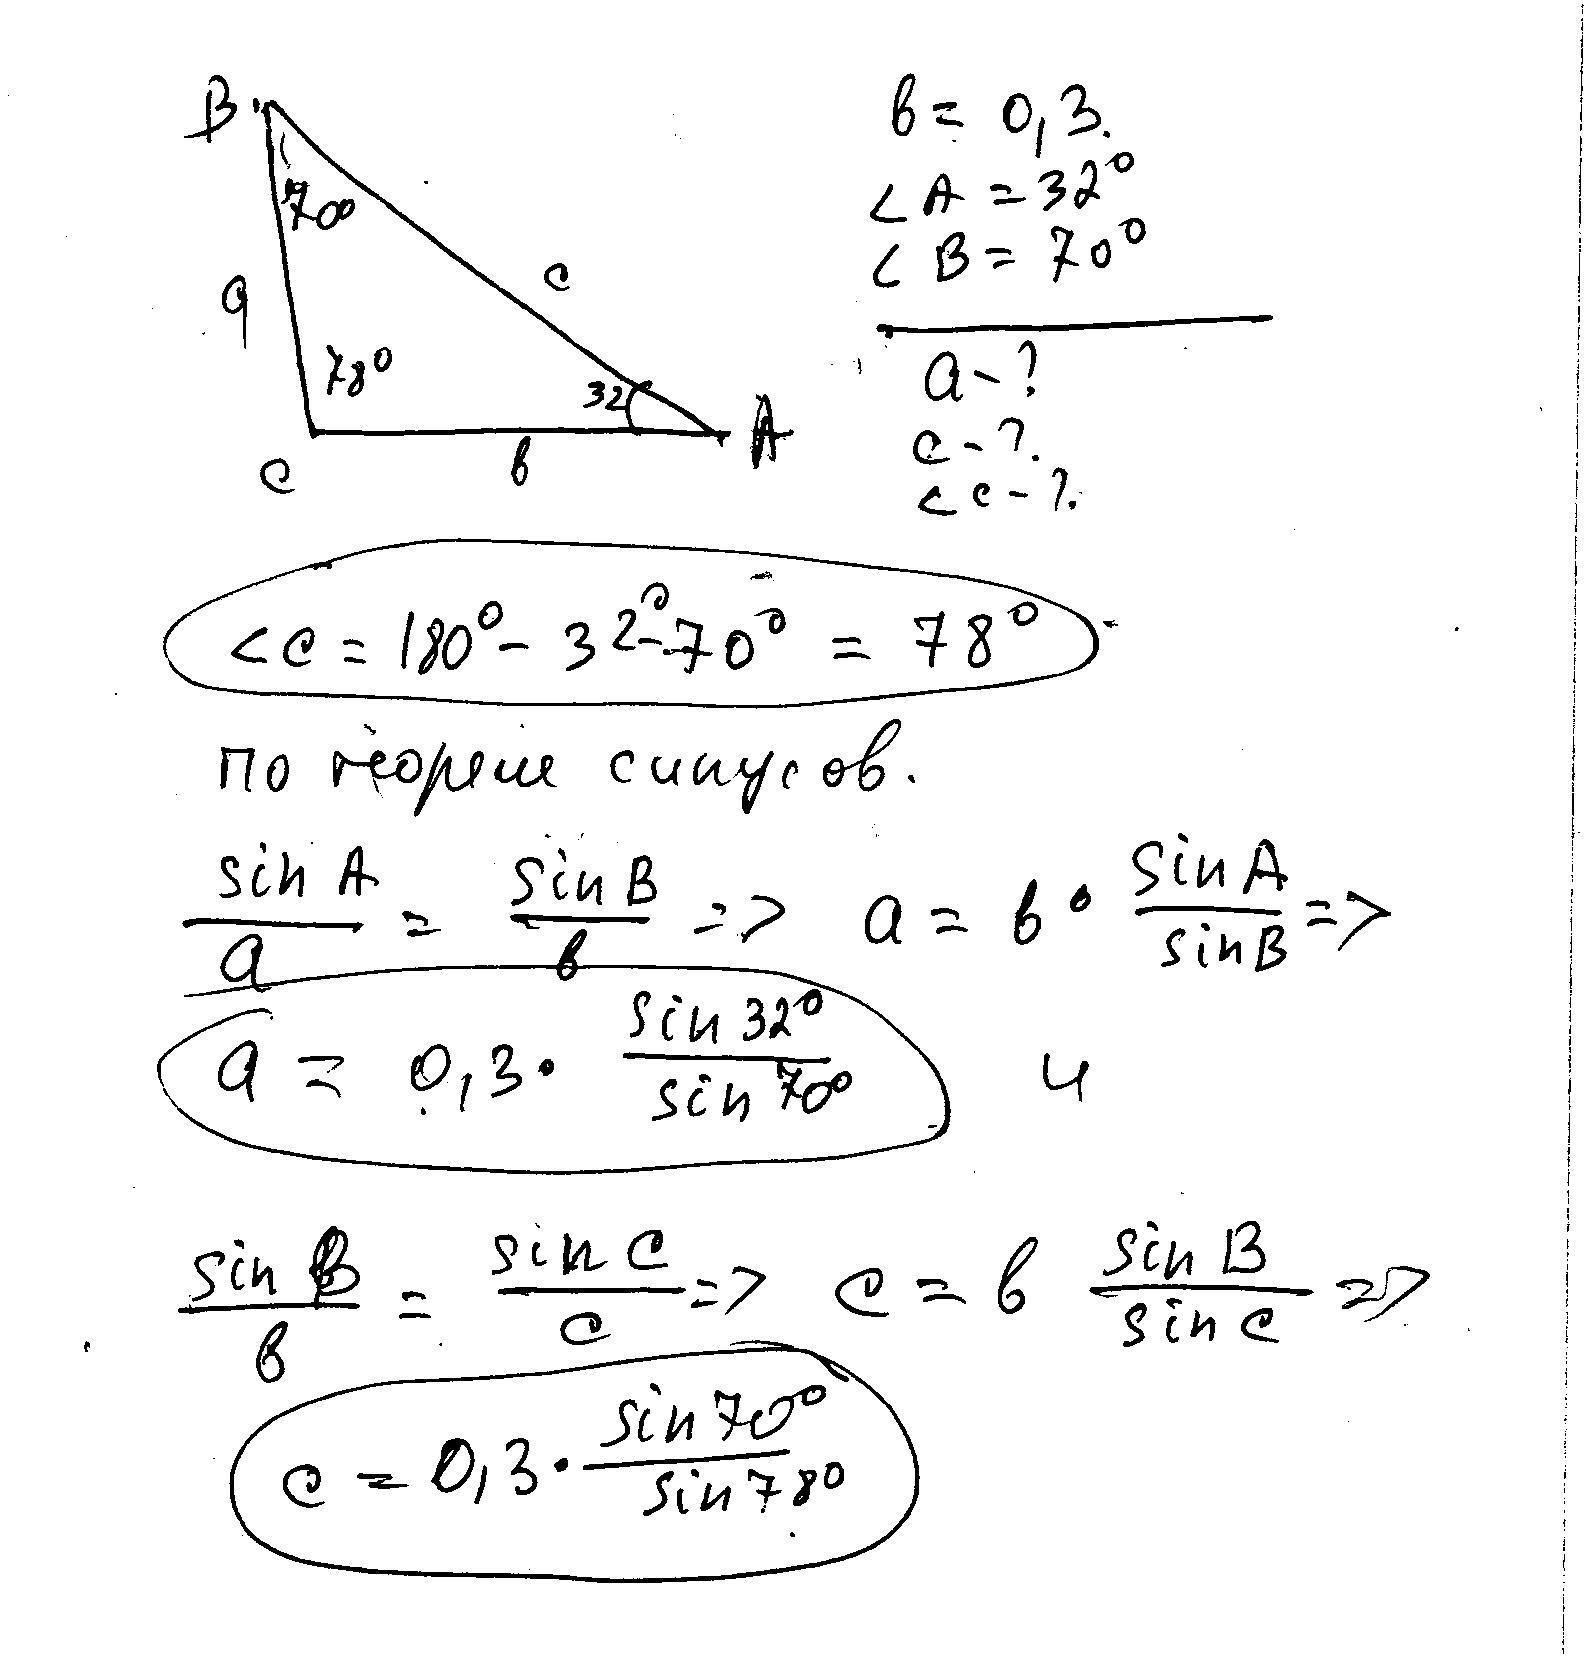 B
70°
a
c
78°
32
C
b
A
b = 0,3.
<A = 32°
<B = 70°
a - ?
c - ?.
<C - ?.
<C = 180° - 32° - 70° = 78°
по теореме синусов.
sin A / a = sin B / b => a = b · sin A / sin B =>
a = 0,3 · sin 32° / sin 70° и
sin B / b = sin C / c => c = b sin B / sin C =>
c = 0,3 · sin 70° / sin 78°